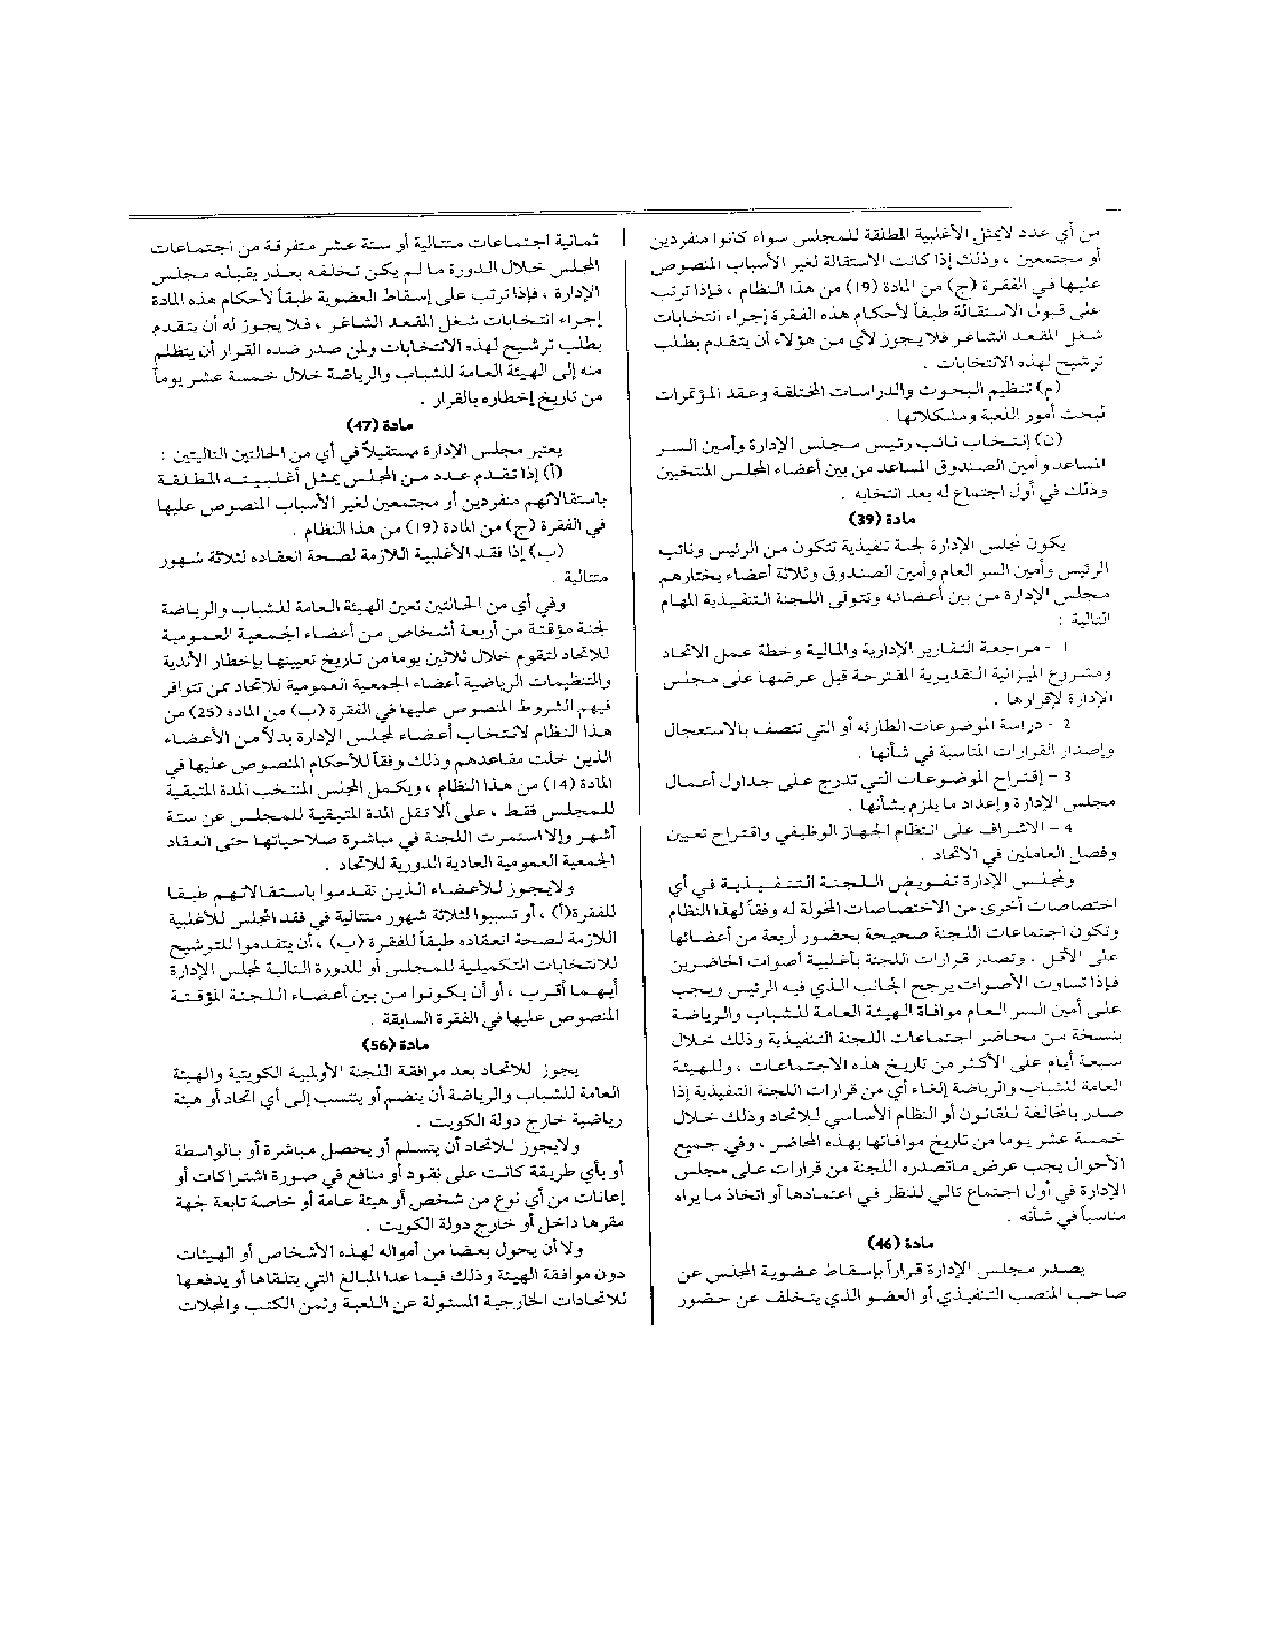 من أي عدد لايمثل الأغلبية المطلقة للمجلس سواء كانوا منفردين
أو مجتمعين ، وذلك إذا كانت الاستقالة لغير الأسباب المنصوص
عليها في الفقرة (ج) من المادة (19) من هذا النظام ، فإذا ترتب
على قبول الاستقالة طبقاً لأحكام هذه الفقرة إجراء انتخابات
شغل المقعد الشاغر فلا يجوز لأي من هؤلاء أن يتقدم بطلب
ترشيح لهذه الانتخابات .
(م) تنظيم البحوث والدراسات المختلفة وعقد المؤتمرات
لبحث أمور اللعبة ومشكلاتها .
(ن) إنتخاب نائب رئيس مجلس الإدارة وأمين السر
المساعد وأمين الصندوق المساعد من بين أعضاء المجلس المنتخبين
وذلك في أول اجتماع له بعد انتخابه .
مادة (39)
يكون لمجلس الإدارة لجنة تنفيذية تتكون من الرئيس ونائب
الرئيس وأمين السر العام وأمين الصندوق وثلاثة أعضاء يختارهم
مجلس الإدارة من بين أعضائه وتتولى اللجنة التنفيذية المهام
التالية :
1 - مراجعة التقارير الإدارية والمالية وخطة عمل الاتحاد
ومشروع الميزانية التقديرية المقترحة قبل عرضها على مجلس
الإدارة لإقرارها .
2 - دراسة الموضوعات الطارئه أو التي تتصف بالاستعجال
وإصدار القرارات المناسبة في شأنها .
3 - إقتراح الموضوعات التي تدرج على جداول أعمال
مجلس الإدارة وإعداد ما يلزم بشأنها .
4 - الاشراف على انتظام الجهاز الوظيفي واقتراح تعيين
وفصل العاملين في الاتحاد .
ولمجلس الإدارة تفويض اللجنة التنفيذية في أي
اختصاصات أخرى من الاختصاصات المخولة له وفقاً لهذا النظام
وتكون اجتماعات اللجنة صحيحة بحضور أربعة من أعضائها
على الأقل . وتصدر قرارات اللجنة بأغلبية أصوات الحاضرين
فإذا تساوت الأصوات يرجح الجانب الذي فيه الرئيس ويجب
على أمين السر العام موافاة الهيئة العامة للشباب والرياضة
بنسخة من محاضر اجتماعات اللجنة التنفيذية وذلك خلال
سبعة أيام على الأكثر من تاريخ هذه الاجتماعات ، وللهيئة
العامة للشباب والرياضة إلغاء أي من قرارات اللجنة التنفيذية إذا
صدر بالمخالفة للقانون أو النظام الأساسي للاتحاد وذلك خلال
خمسة عشر يوما من تاريخ موافاتها بهذه المحاضر ، وفي جميع
الأحوال يجب عرض ماتصدره اللجنة من قرارات على مجلس
الإدارة في أول اجتماع تالي للنظر في اعتمادها أو اتخاذ ما يراه
مناسباً في شأنه .
مادة (46)
يصدر مجلس الإدارة قراراً بإسقاط عضوية المجلس عن
صاحب المنصب التنفيذي أو العضو الذي يتخلف عن حضور
ثمانية اجتماعات متتالية أو ستة عشر متفرقة من اجتماعات
المجلس خلال الدورة ما لم يكن تخلفه بعذر يقبله مجلس
الإدارة ، فإذا ترتب على إسقاط العضوية طبقاً لأحكام هذه المادة
إجراء انتخابات شغل المقعد الشاغر ، فلا يجوز له أن يتقدم
بطلب ترشيح لهذه الانتخابات ولمن صدر ضده القرار أن يتظلم
منه إلى الهيئة العامة للشباب والرياضة خلال خمسة عشر يوماً
من تاريخ إخطاره بالقرار .
مادة (47)
يعتبر مجلس الإدارة مستقيلاً في أي من الحالتين التاليتين :
(أ) إذا تقدم عدد من المجلس يمثل أغلبيته المطلقة
باستقالاتهم منفردين أو مجتمعين لغير الأسباب المنصوص عليها
في الفقرة (ج) من المادة (19) من هذا النظام .
(ب) إذا فقد الأغلبية اللازمة لصحة انعقاده لثلاثة شهور
متتالية .
وفي أي من الحالتين تعين الهيئة العامة للشباب والرياضة
لجنة مؤقتة من أربعة أشخاص من أعضاء الجمعية العمومية
للاتحاد لتقوم خلال ثلاثين يوما من تاريخ تعيينها بإخطار الأندية
والتنظيمات الرياضية أعضاء الجمعية العمومية للاتحاد ممن تتوافر
فيهم الشروط المنصوص عليها في الفقرة (ب) من المادة (25) من
هذا النظام لانتخاب أعضاء لمجلس الإدارة بدلاً من الأعضاء
الذين خلت مقاعدهم وذلك وفقاً للأحكام المنصوص عليها في
المادة (14) من هذا النظام ، ويكمل المجلس المنتخب المدة المتبقية
للمجلس فقط ، على ألا تقل المدة المتبقية للمجلس عن ستة
أشهر وإلا استمرت اللجنة في مباشرة صلاحياتها حتى انعقاد
الجمعية العمومية العادية الدورية للاتحاد .
ولايجوز للأعضاء الذين تقدموا باستقالاتهم طبقا
للفقرة (أ) ، أو تسببوا لثلاثة شهور متتالية في فقد المجلس للأغلبية
اللازمة لصحة انعقاده طبقاً للفقرة (ب) ، أن يتقدموا للترشيح
للانتخابات التكميلية للمجلس أو للدورة التالية لمجلس الإدارة
أيهما أقرب ، أو أن يكونوا من بين أعضاء اللجنة المؤقتة
المنصوص عليها في الفقرة السابقة .
مادة (56)
يجوز للاتحاد بعد موافقة اللجنة الأولمبية الكويتية والهيئة
العامة للشباب والرياضة أن ينضم أو ينتسب إلى أي اتحاد أو هيئة
رياضية خارج دولة الكويت .
ولايجوز للاتحاد أن يتسلم أو يحصل مباشرة أو بالواسطة
أو بأي طريقة كانت على نقود أو منافع في صورة اشتراكات أو
إعانات من أي نوع من شخص أو هيئة عامة أو خاصة تابعة لجهة
مقرها داخل أو خارج دولة الكويت .
ولا أن يحول بعضا من أمواله لهذه الأشخاص أو الهيئات
دون موافقة الهيئة وذلك فيما عدا المبالغ التي يتلقاها أو يدفعها
للاتحادات الخارجية المسئولة عن اللعبة وثمن الكتب والمجلات